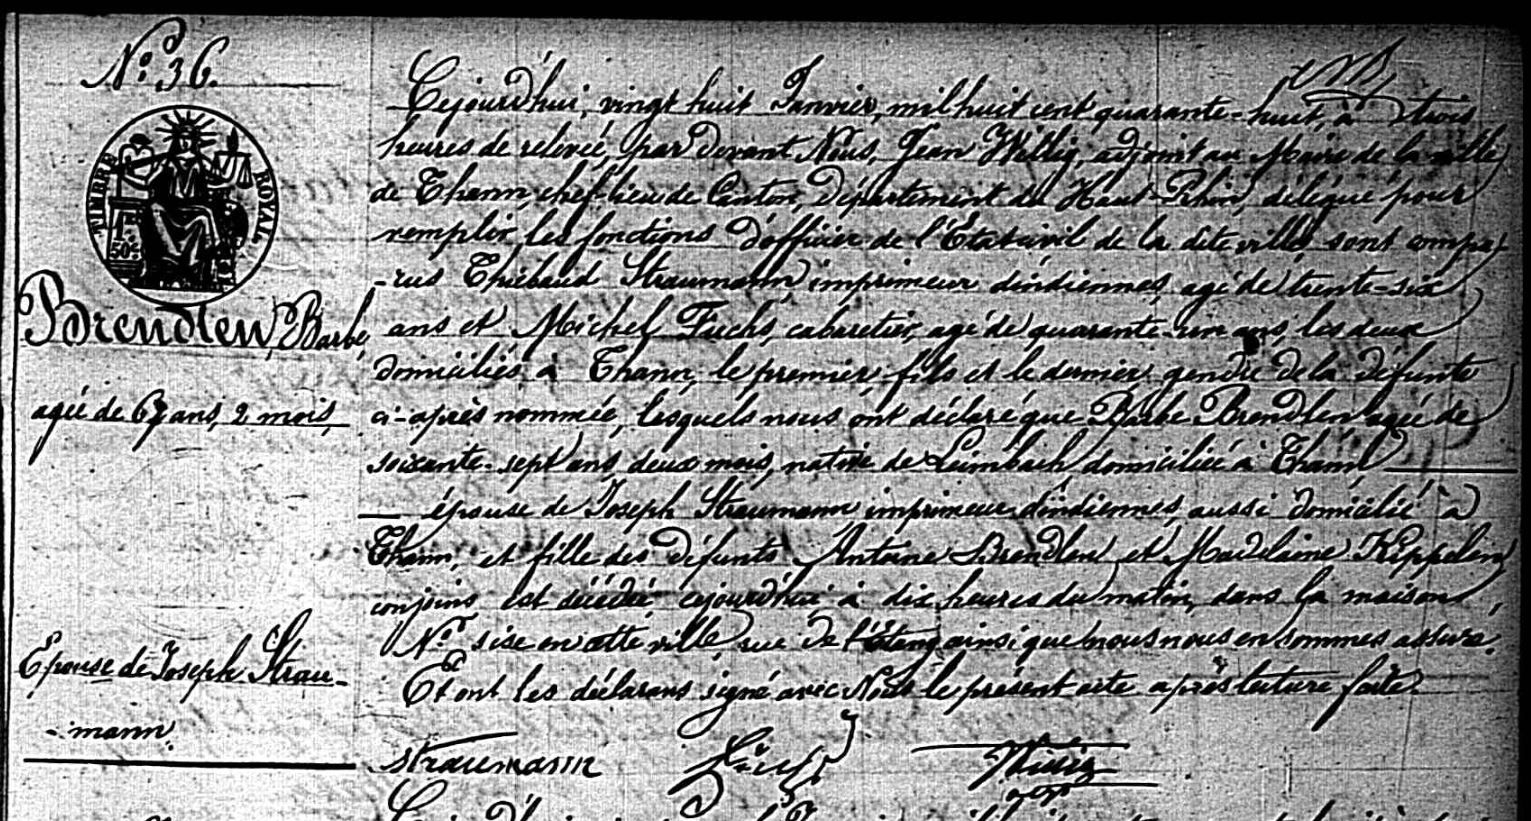 N.º 36.
TIMBRE ROYAL
1F.
50c.
Brendlen, Barbe,
agée de 67 ans, 2 mois,
Epouse de Joseph Strau-
-mann.
Cejourd'hui, vingt huit Janvier, mil huit cent quarante-huit, à trois
heures de relevée, par devant Nous, Jean Willig, adjoint au Maire de la ville
de Thann, chef-lieu de Canton, Département du Haut-Rhin, délégué pour
remplir les fonctions d'officier de l'Etat civil de la dite ville, sont compa-
-rus Thiébaud Straumann imprimeur d'indiennes, agé de trente-six
ans et Michel Fuchs, cabaretier, agé de quarante- ans, les deux
domiciliés à Thann, le premier, fils et le dernier, gendre de la défunte
ci-après nommée, lesquels nous ont déclaré que Barbe Brendlen agée de
soixante-sept ans, deux mois, native de Leimbach, domiciliée à Thann
épouse de Joseph Straumann imprimeur d'indiennes, aussi domicilié à
Thann, et fille des défunts Antoine Brendlen et Madelaine Kippelen
conjoins, est décédée, cejourd'hui à dix heures du matin, dans la maison
N.º sise en cette ville, rue de l'Etang ainsi que nous nous en sommes assuré.
Et ont les déclarans signé avec Nous le présent acte après lecture faite.
Straumann Fuchs Willig